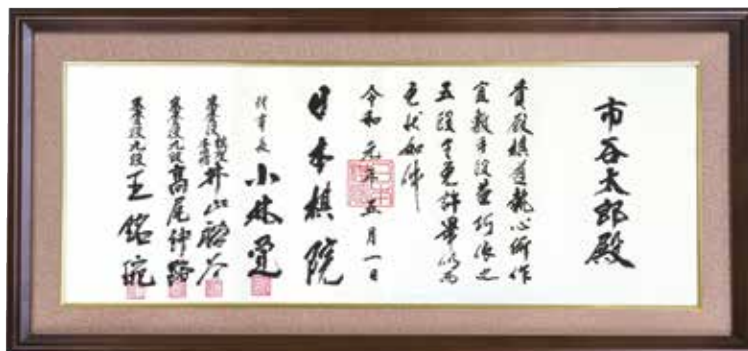 市谷太郎殿
貴殿棋道執心所作
宜敷手段益巧依之
五段令免許畢仍而
免状如件
令和元年五月一日
日本棋院
理事長 小林覚
審査役 棋聖 本因坊 井山裕太
審査役九段 高尾紳路
審査役九段 王銘琬